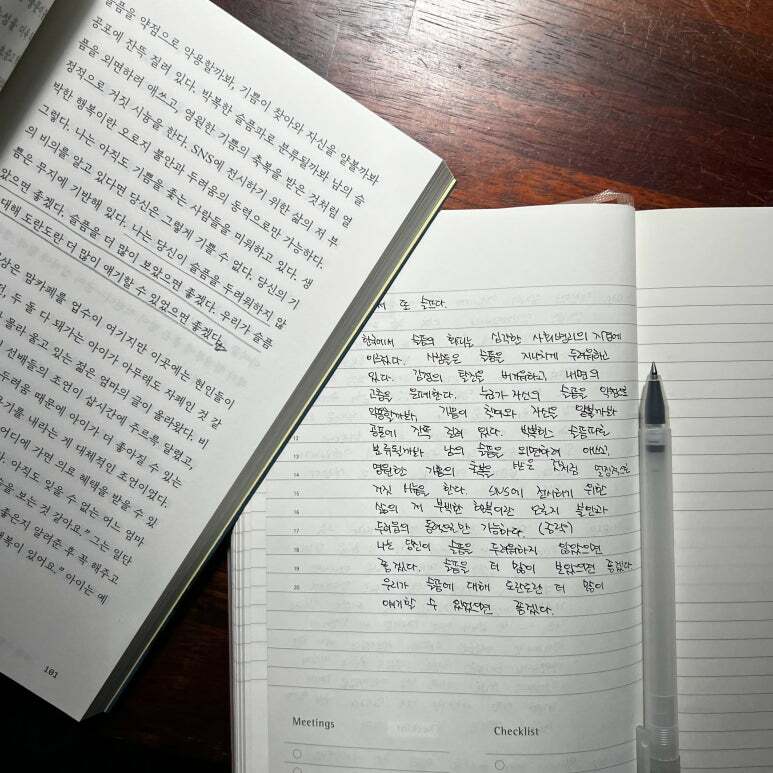 슬픔을 약점으로 악용할까봐, 기쁨이 찾아와 자신을 얕볼까봐
공포에 잔뜩 질려 있다. 박복한 슬픔파로 분류될까봐 남의 슬
픔을 외면하려 애쓰고, 영원한 기쁨의 축복을 받은 것처럼 열
정적으로 거짓 시늉을 한다. SNS에 전시하기 위한 삶의 저 부
박한 행복이란 오로지 불안과 두려움의 동력으로만 가능하다.
그렇다. 나는 아직도 기쁨을 좇는 사람들을 미워하고 있다. 생
의 비의를 알고 있다면 당신은 그렇게 기쁠 수 없다. 당신의 기
쁨은 무지에 기반해 있다. 나는 당신이 슬픔을 두려워하지 않
았으면 좋겠다. 슬픔을 더 많이 보았으면 좋겠다. 우리가 슬픔
대해 도란도란 더 많이 얘기할 수 있었으면 좋겠다.
상은 맘카페를 업수이 여기지만 이곳에는 현인들이
두 돌 다 돼가는 아이가 아무래도 자폐인 것 같
올라 울고 있는 젊은 엄마의 글이 올라왔다. 비
선배들의 조언이 삽시간에 주르륵 달렸고,
두려움 때문에 아이가 더 좋아질 수 있는
기를 내라는 게 대체적인 조언이었다.
어디에 가면 의료 혜택을 받을 수 있
아직도 잊을 수 없는 어느 엄마
을 보는 것 같아요." 그는 일단
좋은지 알려준 후 꼭 해주고
복이 있어요." 아이는 예
101
서 또 슬프다.
한국에서 슬픔의 회피는 심각한 사회병리의 지점에
이르렀다. 사람들은 슬픔을 지나치게 두려워하고
있다. 감정의 탕진을 버거워하고, 내면의
고충을 은폐한다. 누군가 자신의 슬픔을 약점으로
악용할까봐, 기쁨이 찾아와 자신을 얕볼까봐
공포에 잔뜩 질려 있다. 박복한 슬픔파로
분류될까봐 남의 슬픔을 외면하려 애쓰고,
영원한 기쁨의 축복을 받은 것처럼 열정적으로
거짓 시늉을 한다. SNS에 전시하기 위한
삶의 저 부박한 행복이란 오로지 불안과
두려움의 동력으로만 가능하다. (중략)
나는 당신이 슬픔을 두려워하지 않았으면
좋겠다. 슬픔을 더 많이 보았으면 좋겠다.
우리가 슬픔에 대해 도란도란 더 많이
얘기할 수 있었으면 좋겠다.
12
13
14
15
16
17
18
19
20
Meetings
Checklist